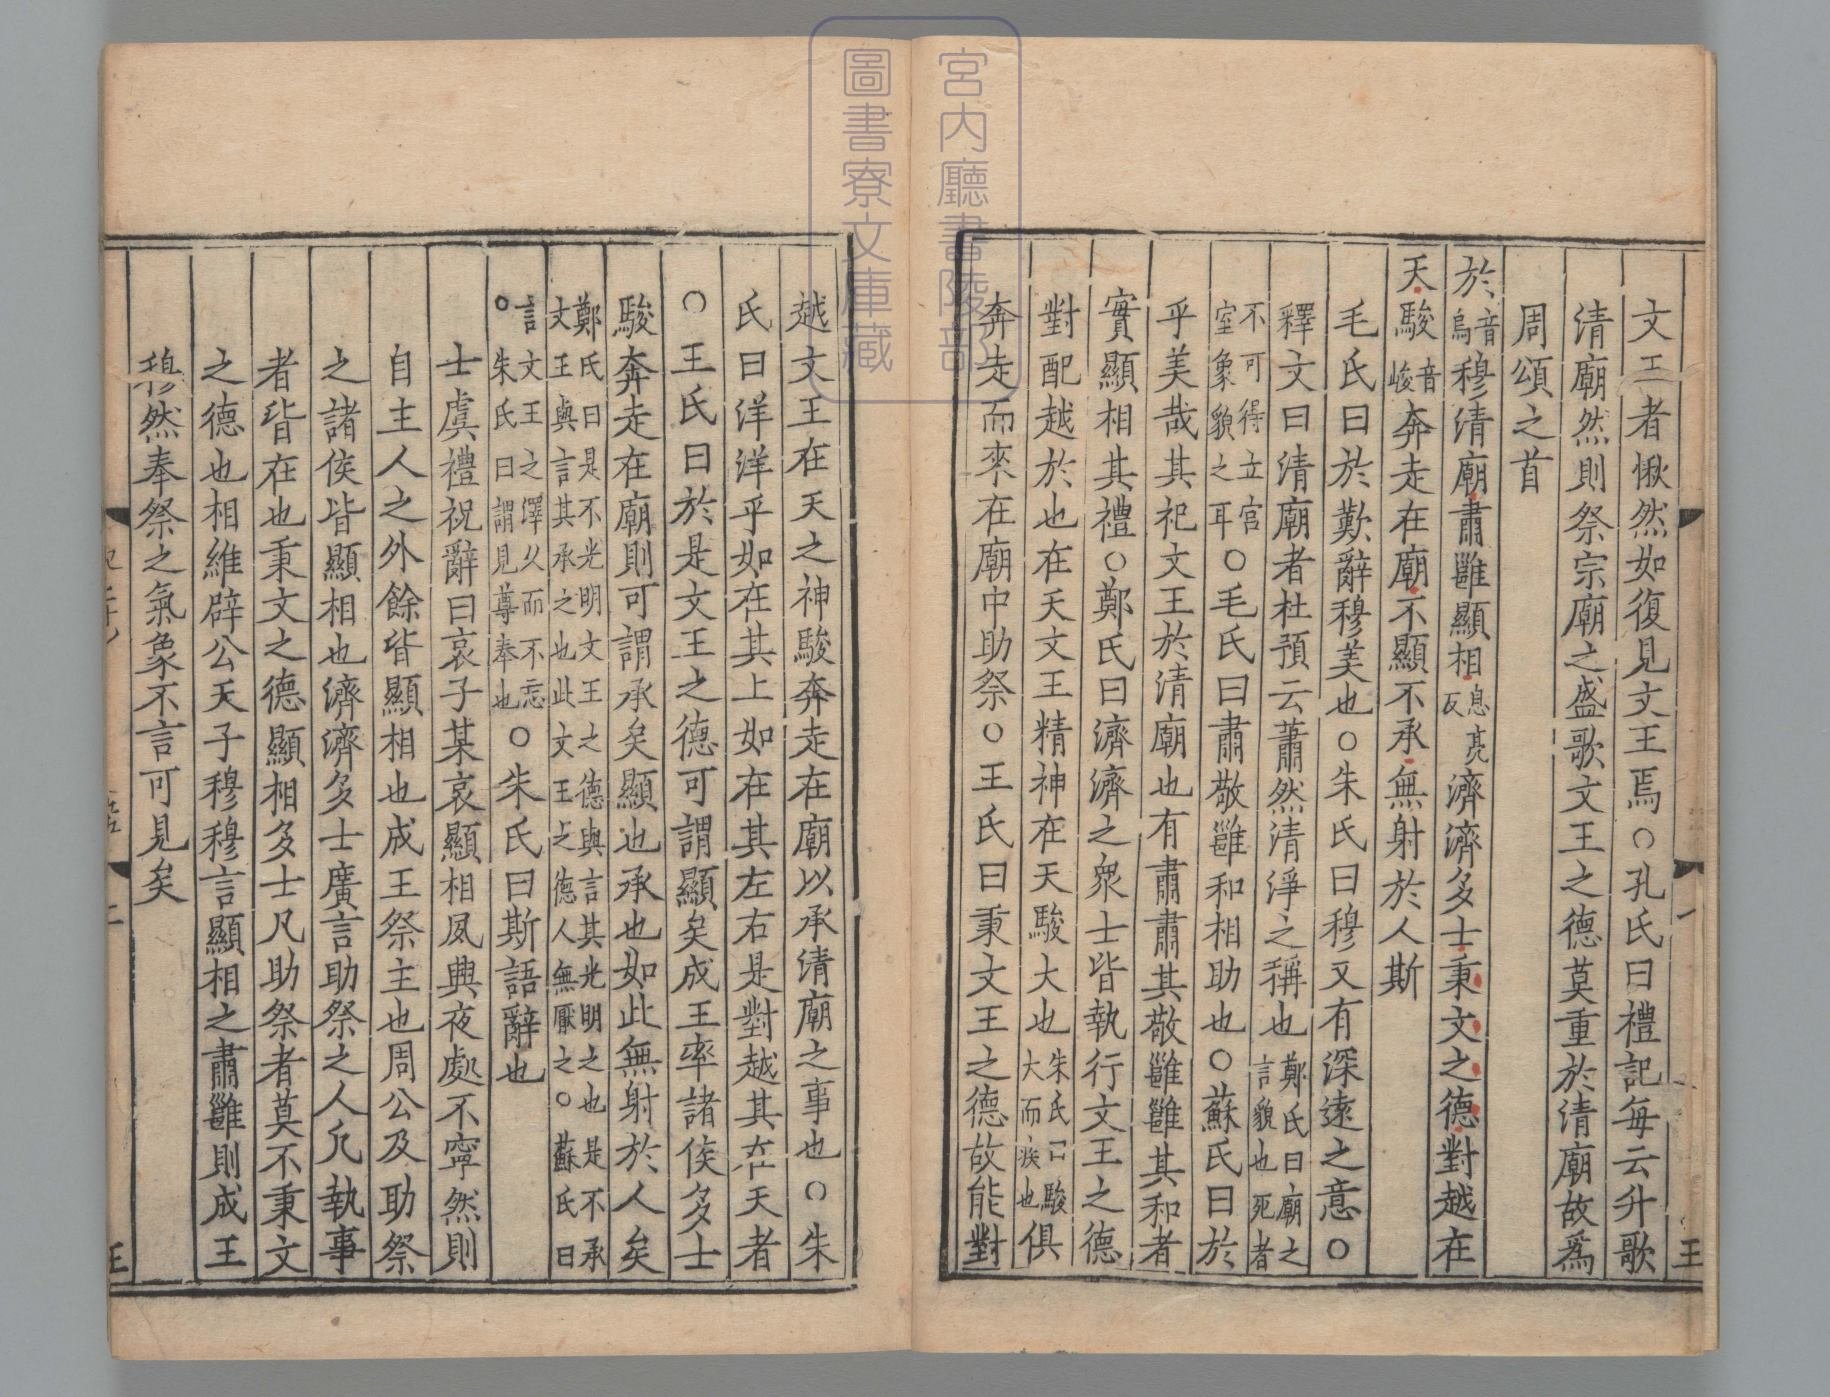 宮内廳書陵部
圖書寮文庫藏
文王者愀然如復見文王焉○孔氏曰禮記每云升歌
清廟然則祭宗廟之盛歌文王之德莫重於清廟故爲
周頌之首
於音烏穆清廟肅雝顯相息亮反濟濟多士秉文之德對越在
天駿音峻奔走在廟不顯不承無射於人斯
毛氏曰於歎辭穆美也○朱氏曰穆又有深遠之意○
釋文曰清廟者杜預云蕭然清淨之稱也鄭氏曰廟之言貌也死者
不可得立宮室象貌之耳○毛氏曰肅敬雝和相助也○蘇氏曰於
乎美哉其祀文王於清廟也有肅肅其敬雝雝其和者
實顯相其禮○鄭氏曰濟濟之衆士皆執行文王之德
對配越於也在天文王精神在天駿大也朱氏曰駿大而疾也俱
奔走而來在廟中助祭○王氏曰秉文王之德故能對
越文王在天之神駿奔走在廟以承清廟之事也○朱
氏曰洋洋乎如在其上如在其左右是對越其在天者
○王氏曰於是文王之德可謂顯矣成王率諸侯多士
駿奔走在廟則可謂承矣顯也承也如此無射於人矣
鄭氏曰是不光明文王之德與言其光明之也是不承
文王與言其承之也此文王之德人無厭之○蘇氏曰
言文王之澤久而不忘○朱氏曰謂見尊奉也○朱氏曰斯語辭也
士虞禮祝辭曰哀子某哀顯相夙興夜處不寧然則
自主人之外餘皆顯相也成王祭主也周公及助祭
之諸侯皆顯相也濟濟多士廣言助祭之人凢執事
者皆在也秉文之德顯相多士凡助祭者莫不秉文
之德也相維辟公天子穆穆言顯相之肅雝則成王
穆然奉祭之氣象不言可見矣